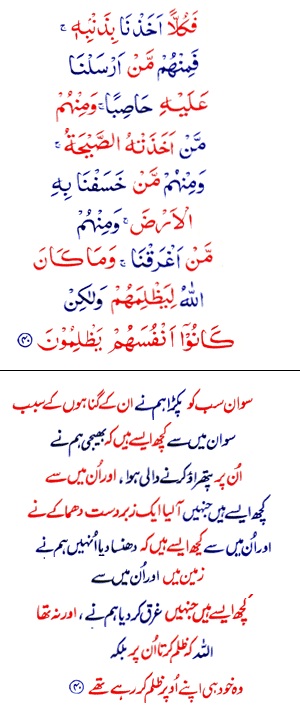 فَكُلًّا اَخَذْنَا بِذَنْۢبِهٖ ۚ
فَمِنْهُمْ مَّنْ اَرْسَلْنَا
عَلَيْهِ حَاصِبًا ۚ وَمِنْهُمْ
مَّنْ اَخَذَتْهُ الصَّيْحَةُ ۚ
وَمِنْهُمْ مَّنْ خَسَفْنَا بِهِ
الْاَرْضَ ۚ وَمِنْهُمْ
مَّنْ اَغْرَقْنَا ۚ وَمَا كَانَ
اللّٰهُ لِيَظْلِمَهُمْ وَلٰكِنْ
كَانُوْٓا اَنْفُسَهُمْ يَظْلِمُوْنَ ﴿۴۰﴾
سو ان سب کو پکڑا ہم نے ان کے گناہوں کے سبب
سو ان میں سے کچھ ایسے ہیں کہ بھیجی ہم نے
اُن پر پتھراؤ کرنے والی ہوا، اور اُن میں سے
کچھ ایسے ہیں جنہیں آلیا ایک زبردست دھماکے نے
اور اُن میں سے کچھ ایسے ہیں کہ دھنسا دیا اُنہیں ہم نے
زمین میں اور اُن میں سے
کچھ ایسے ہیں جنہیں غرق کر دیا ہم نے، اور نہ تھا
اللہ کہ ظلم کرتا اُن پر بلکہ
وہ خود ہی اپنے اُوپر ظلم کر رہے تھے ﴿۴۰﴾